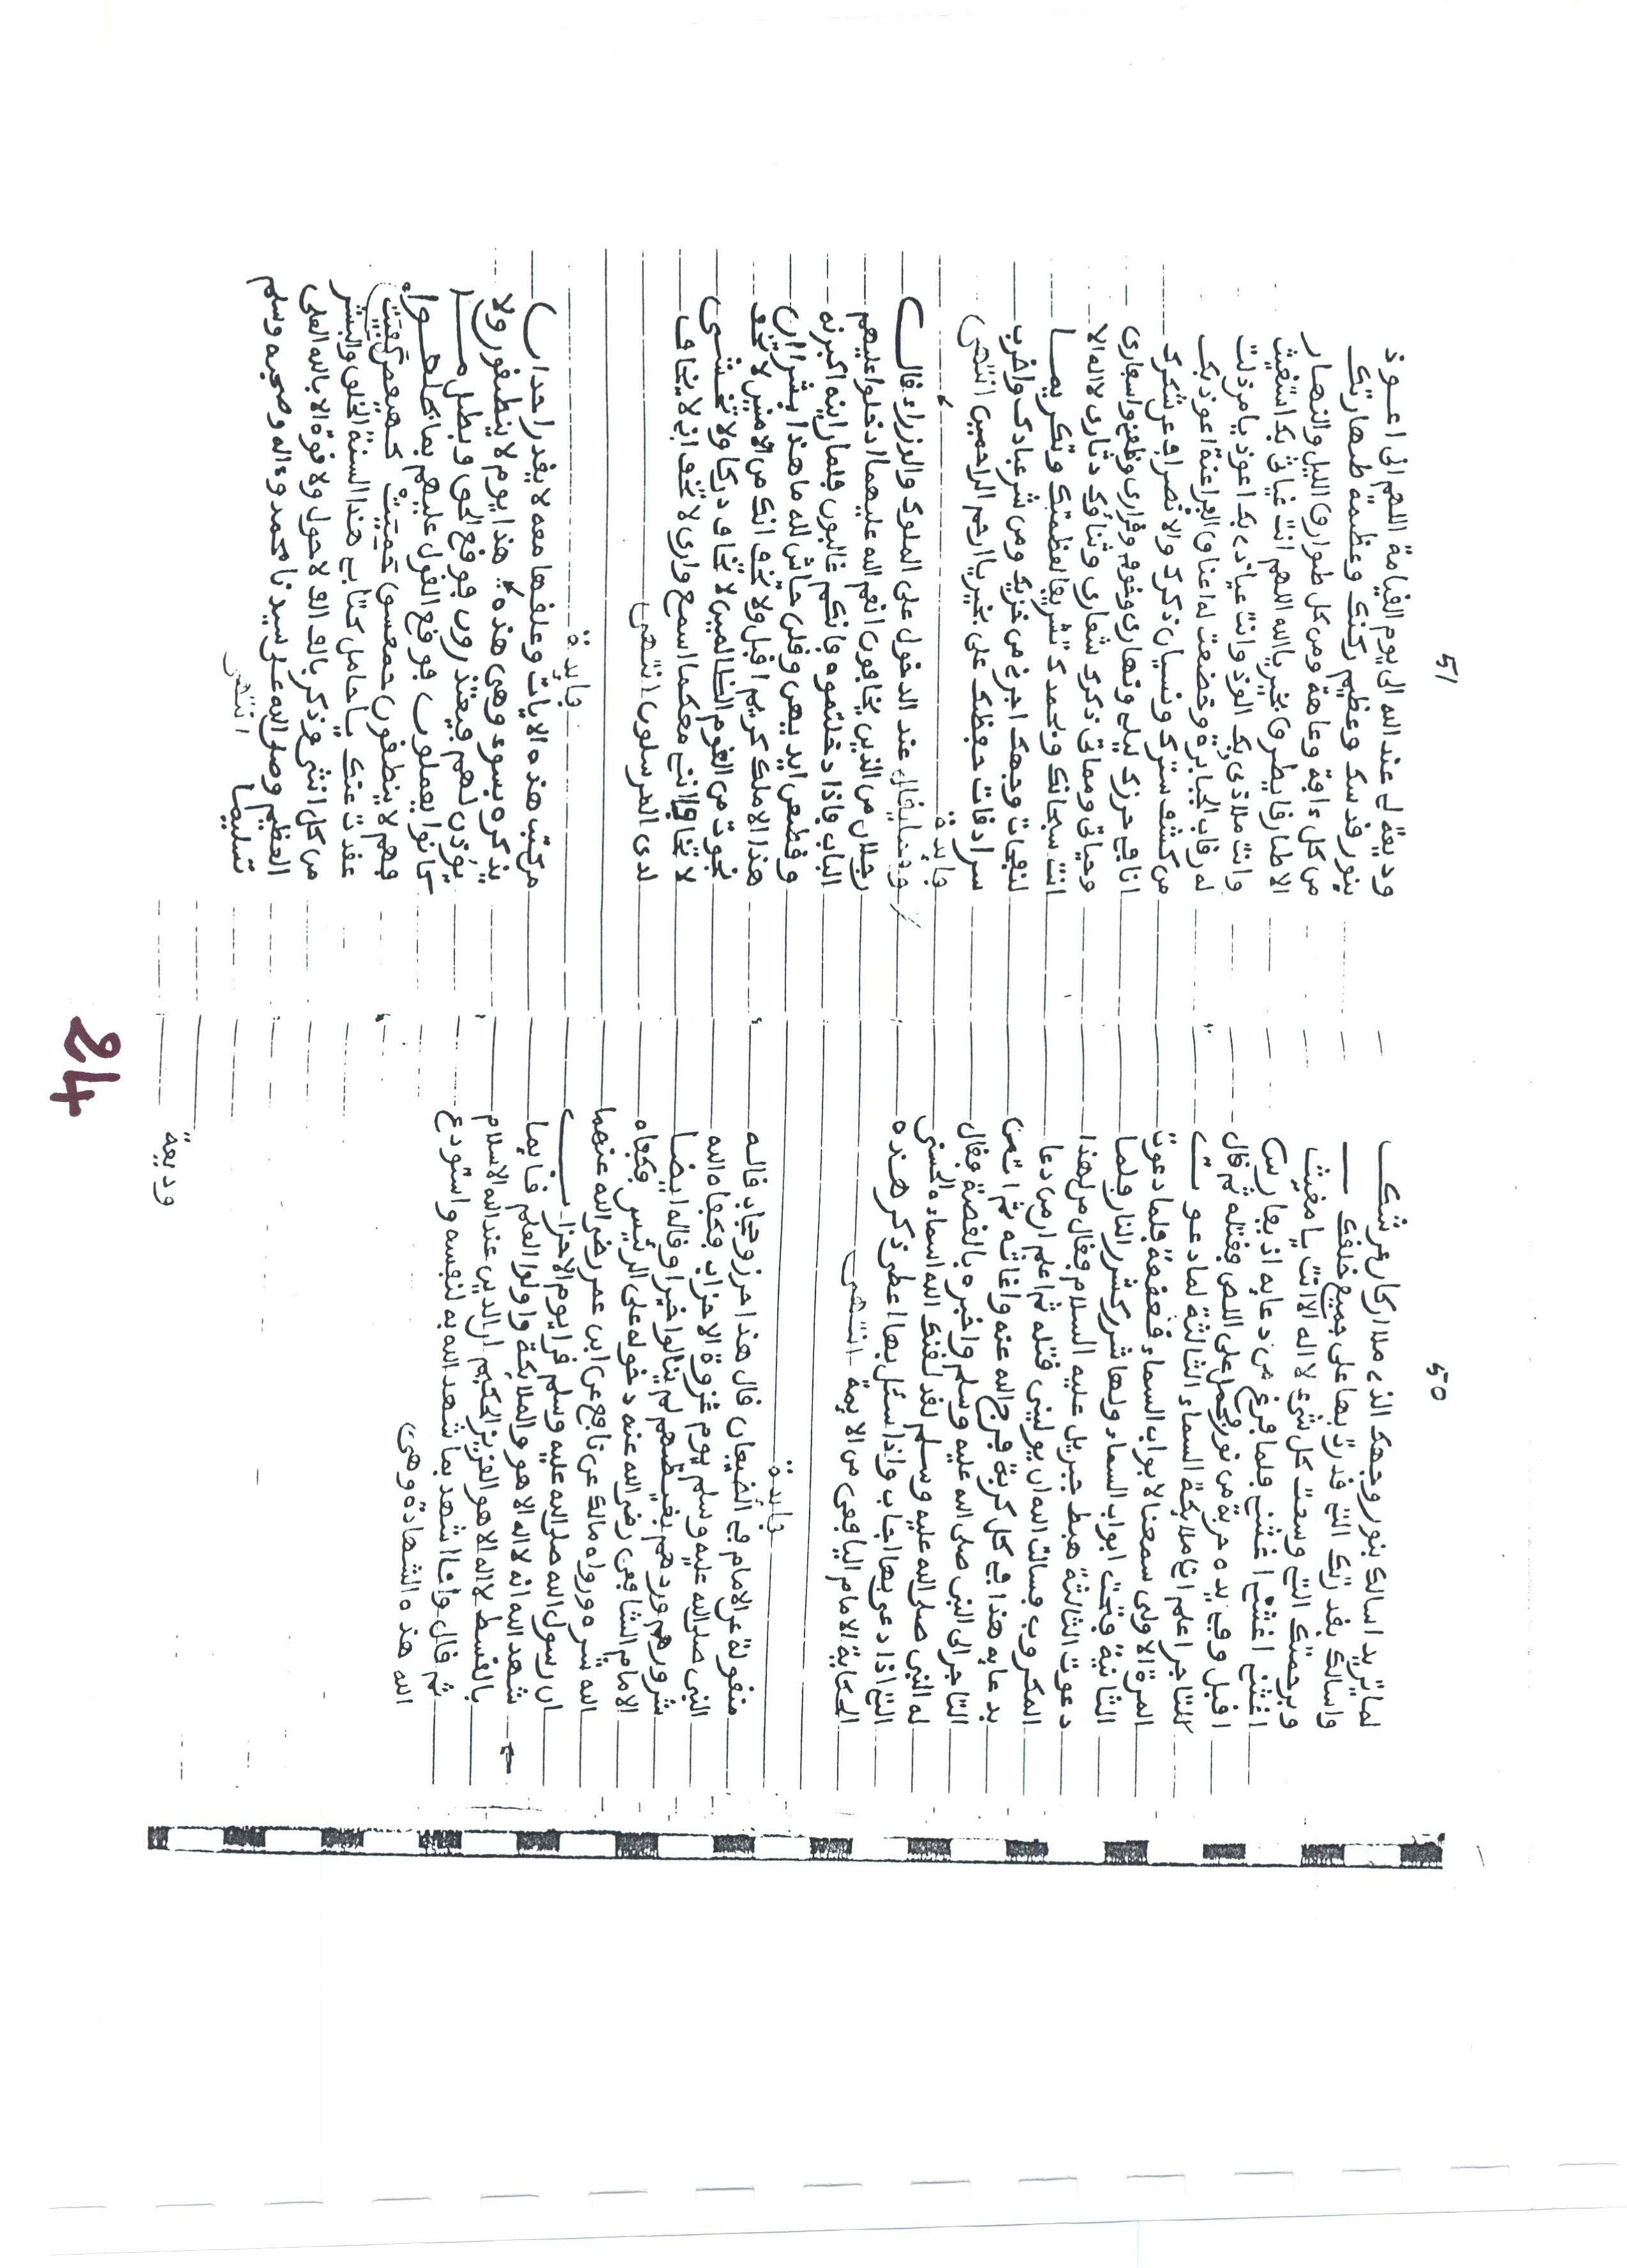 50
لما تريد اسالك بنور وجهك الذي ملا اركان عرشك
واسالك بقدرتك التي قدرت بها على جميع خلقك
وبرحمتك التي وسعت كل شيء لا اله الا انت يا مغيث
اغثني اغثني اغثني فلما فرغ من دعايه اذ بفارس
اقبل وفي يده حربة من نور فحمل على اللص فقتله ثم قال
للتاجر اعلم اني ملايكة السماء الثالثة لما دعوت
المرة الاولى سمعنا لابواب السماء قعقعة فلما دعوت
الثانية فتحت ابواب السماء ولها شرر كشرر النار فلما
دعوت الثالثة هبط جبريل عليه السلام فقال من لهذا
المكروب فسالت الله ان يوليني قتله ثم اعلم ان من دعا
بدعايه هذا في كل كربة فرج الله عنه واغاثه ثم اتى
التاجر الى النبي صلى الله عليه وسلم واخبره بالقصة فقال
له النبي صلى الله عليه وسلم لقد لقنك الله اسماءه الحسنى
التي اذا دعي بها اجاب واذا سئل بها اعطى ذكر هذه
الحكاية الامام اليافعي من الايمة انتهى
فايدة
منقولة عن الامام في الضيعان قال هذا حرز وحجاب قاله
النبي صلى الله عليه وسلم يوم غزوة الاحزاب فكفاه الله
شرورهم وردهم بغيظهم لم ينالوا خيرا وقاله ايضا
الامام الشافعي رضي الله عنه دخوله على الرئيس فكفاه
الله شره ورواه مالك عن نافع عن ابن عمر رضي الله عنهما
ان رسول الله صلى الله عليه وسلم قرا يوم الاحزاب
شهد الله انه لا اله الا هو والملايكة واولوا العلم قايما
بالقسط لا اله الا هو العزيز الحكيم ان الدين عند الله الاسلام
ثم قال وانا اشهد بما شهد الله به لنفسه واستودع
الله هذه الشهادة وهي
وديعة
51
وديعة لي عند الله الى يوم القيامة اللهم اني اعوذ
بنور قدسك وعظيم ركنك وعظمة طهارتك
من كل ءافة وعاهة ومن كل طوارق الليل والنهار
الا طارقا يطرق بخير يا الله اللهم انت غياثي بك استغيث
وانت ملاذي بك الوذ وانت عياذي بك اعوذ يا من ذلت
له رقاب الجبابرة وخضعت له اعناق الفراعنة اعوذ بك
من كشف سترك ونسيان ذكرك والانصراف عن شكرك
انا في حرزك ليلي ونهاري ونومي وقراري وظعني واسفاري
وحياتي ومماتي ذكرك شعاري وثناؤك دثاري لا اله الا
انت سبحانك وبحمدك تشريفا لعظمتك وتكريما
لنفحات وجهك اجرني من خزيك ومن شر عبادك واضرب
سرادقات حفظك علي بخير يا ارحم الراحمين انتهى
فايدة
ومما يقال عند الدخول على الملوك والوزراء قال
رجلان من الذين يخافون انعم الله عليهما ادخلوا عليهم
الباب فاذا دخلتموه فانكم غالبون فلما راينه اكبرنه
وقطعن ايديهن وقلن حاش لله ما هذا بشرا ان
هذا الا ملك كريم اقبل ولا تخف انك من الامنين لا تخف
نجوت من القوم الظالمين لا تخاف دركا ولا تخشى
لا تخافا انني معكما اسمع وارى لا تخف اني لا يخاف
لدي المرسلون انتهى
فايدة
من كتب هذه الايات وعلقها معه لا يقدر احد ان
يذكره بسوء وهي هذه هذا يوم لا ينطقون ولا
يؤذن لهم فيعتذرون فوقع الحق وبطل ما
كانوا يعملون فوقع القول عليهم بما ظلموا
فهم لا ينطقون حمعسق حميت كهيعص كفيت
عقدت عنك يا حامل كتابي هذا السنة الخلق والبشر
من كل انثى وذكر بالف الف لا حول ولا قوة الا بالله العلي
العظيم وصلى الله على سيدنا محمد وءاله وصحبه وسلم
تسليما
انتهى
24